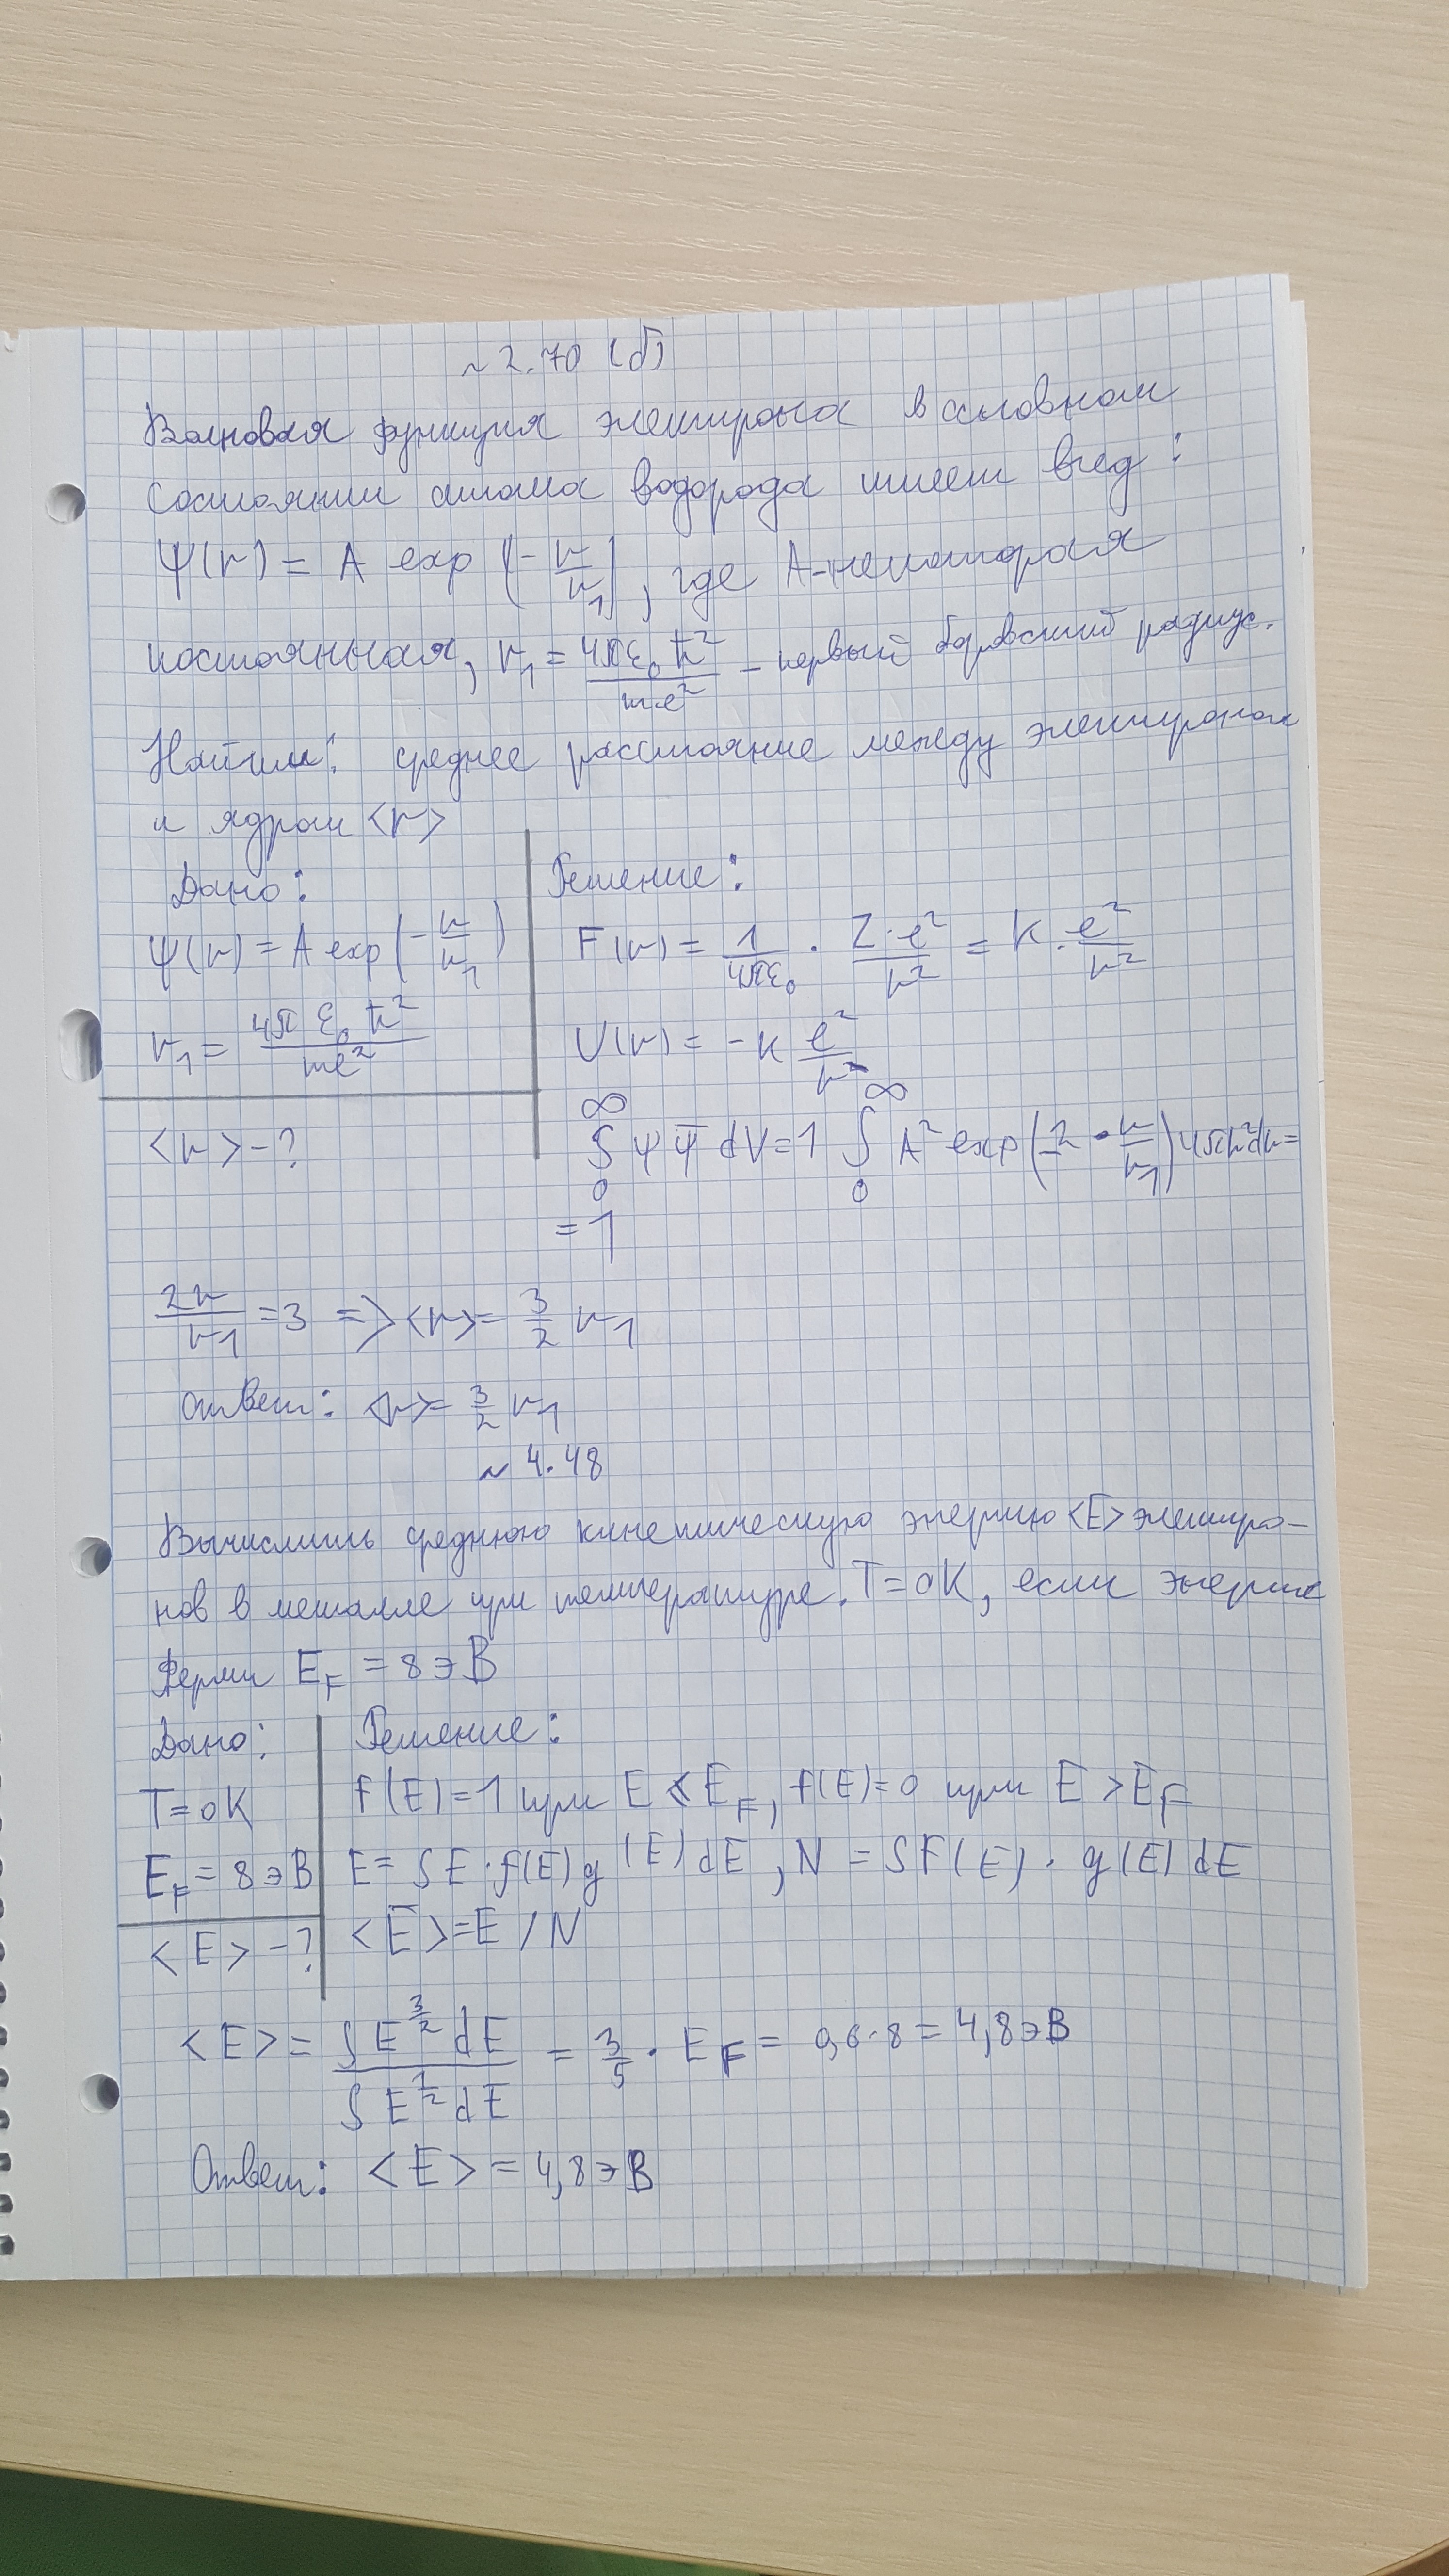 ~ 2.70 (б)
Волновая функция электрона в основном
состоянии атома водорода имеет вид:
Ψ(r) = A exp (-r/r₁), где A-некоторая
постоянная, r₁ = 4πε₀ħ²/me² - первый боровский радиус.
Найти: среднее расстояние между электроном
и ядром <r>
Дано:
Ψ(r) = A exp(-r/r₁)
r₁ = 4πε₀ħ²/me²
<r> - ?
Решение:
F(r) = 1/4πε₀ · Z·e²/r² = K · e²/r²
U(r) = -K e²/r
∫₀^∞ Ψ Ψ̅ dV = 1 ∫₀^∞ A² exp(-2 · r/r₁) 4πr²dr =
= 1
2r/r₁ = 3 => <r> = 3/2 r₁
Ответ: <r> = 3/2 r₁
~ 4.48
Вычислить среднюю кинетическую энергию <E> электро-
нов в металле при температуре T = 0K, если энергия
Ферми E_F = 8 эВ
Дано:
T = 0K
E_F = 8 эВ
<E> - ?
Решение:
f(E) = 1 при E < E_F, f(E) = 0 при E > E_F
E = ∫E · f(E) g(E) dE, N = ∫F(E) · g(E) dE
<E> = E / N
<E> = ∫E^(3/2) dE / ∫E^(1/2) dE = 3/5 · E_F = 0,6 · 8 = 4,8 эВ
Ответ: <E> = 4,8 эВ